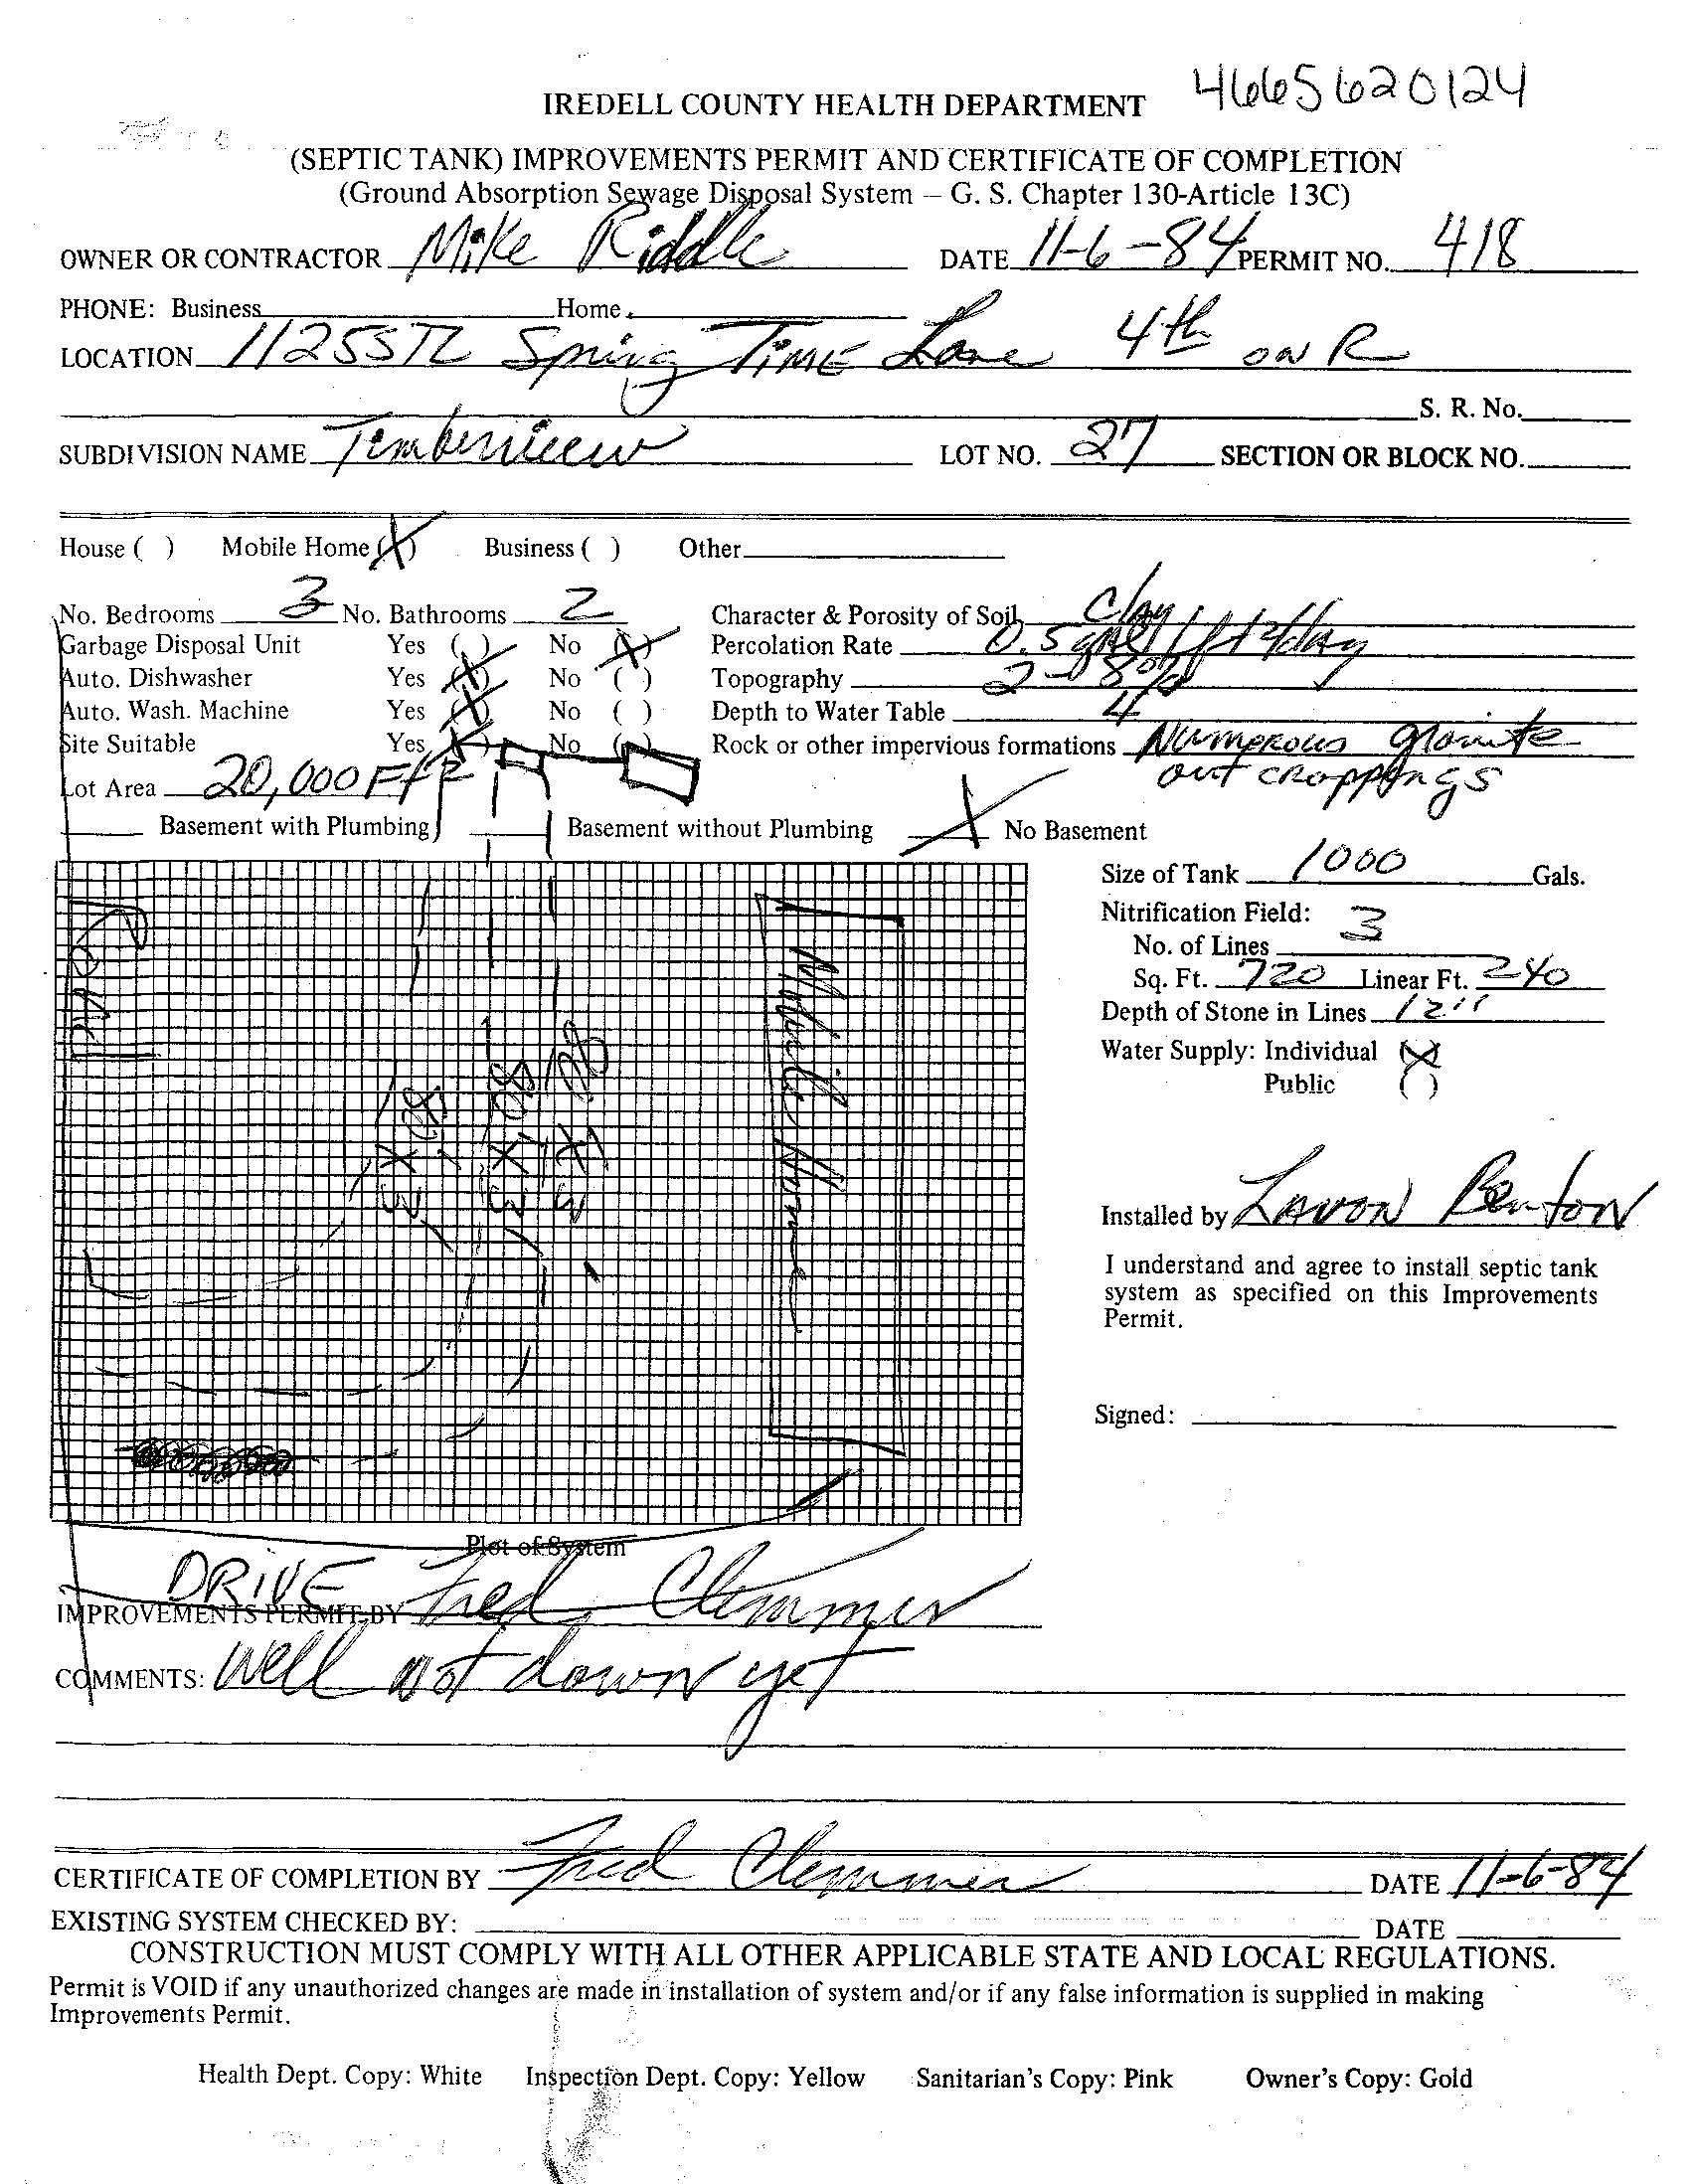 4665620124
IREDELL COUNTY HEALTH DEPARTMENT
(SEPTIC TANK) IMPROVEMENTS PERMIT AND CERTIFICATE OF COMPLETION
(Ground Absorption Sewage Disposal System – G. S. Chapter 130-Article 13C)
OWNER OR CONTRACTOR Mike Riddle DATE 11-6-84 PERMIT NO. 418
PHONE: Business Home
LOCATION 1125 Spring TIME Lane 4th on R
S. R. No.
SUBDIVISION NAME Timberview LOT NO. 27 SECTION OR BLOCK NO.
House ( ) Mobile Home (X) Business ( ) Other
No. Bedrooms 3 No. Bathrooms 2 Character & Porosity of Soil Clay
Garbage Disposal Unit Yes ( ) No (X) Percolation Rate 0.5 gal/ft2/day
Auto. Dishwasher Yes (X) No ( ) Topography 2-8%
Auto. Wash. Machine Yes (X) No ( ) Depth to Water Table 4
Site Suitable Yes (X) No ( ) Rock or other impervious formations Numerous granite
out croppings
Lot Area 20,000 Ft2
Basement with Plumbing Basement without Plumbing X No Basement
Size of Tank 1000 Gals.
Nitrification Field:
No. of Lines 3
Sq. Ft. 720 Linear Ft. 240
Depth of Stone in Lines 12"
Water Supply: Individual (X)
Public ( )
Road
3 X 80
3 X 80
3 X 80
Mobile Home
Installed by Lavon Benton
I understand and agree to install septic tank
system as specified on this Improvements
Permit.
Signed:
Plot of System
DRIVE
IMPROVEMENTS PERMIT BY Fred Clemmer
COMMENTS: Well not down yet
CERTIFICATE OF COMPLETION BY Fred Clemmer DATE 11-6-84
EXISTING SYSTEM CHECKED BY: DATE
CONSTRUCTION MUST COMPLY WITH ALL OTHER APPLICABLE STATE AND LOCAL REGULATIONS.
Permit is VOID if any unauthorized changes are made in installation of system and/or if any false information is supplied in making
Improvements Permit.
Health Dept. Copy: White Inspection Dept. Copy: Yellow Sanitarian's Copy: Pink Owner's Copy: Gold